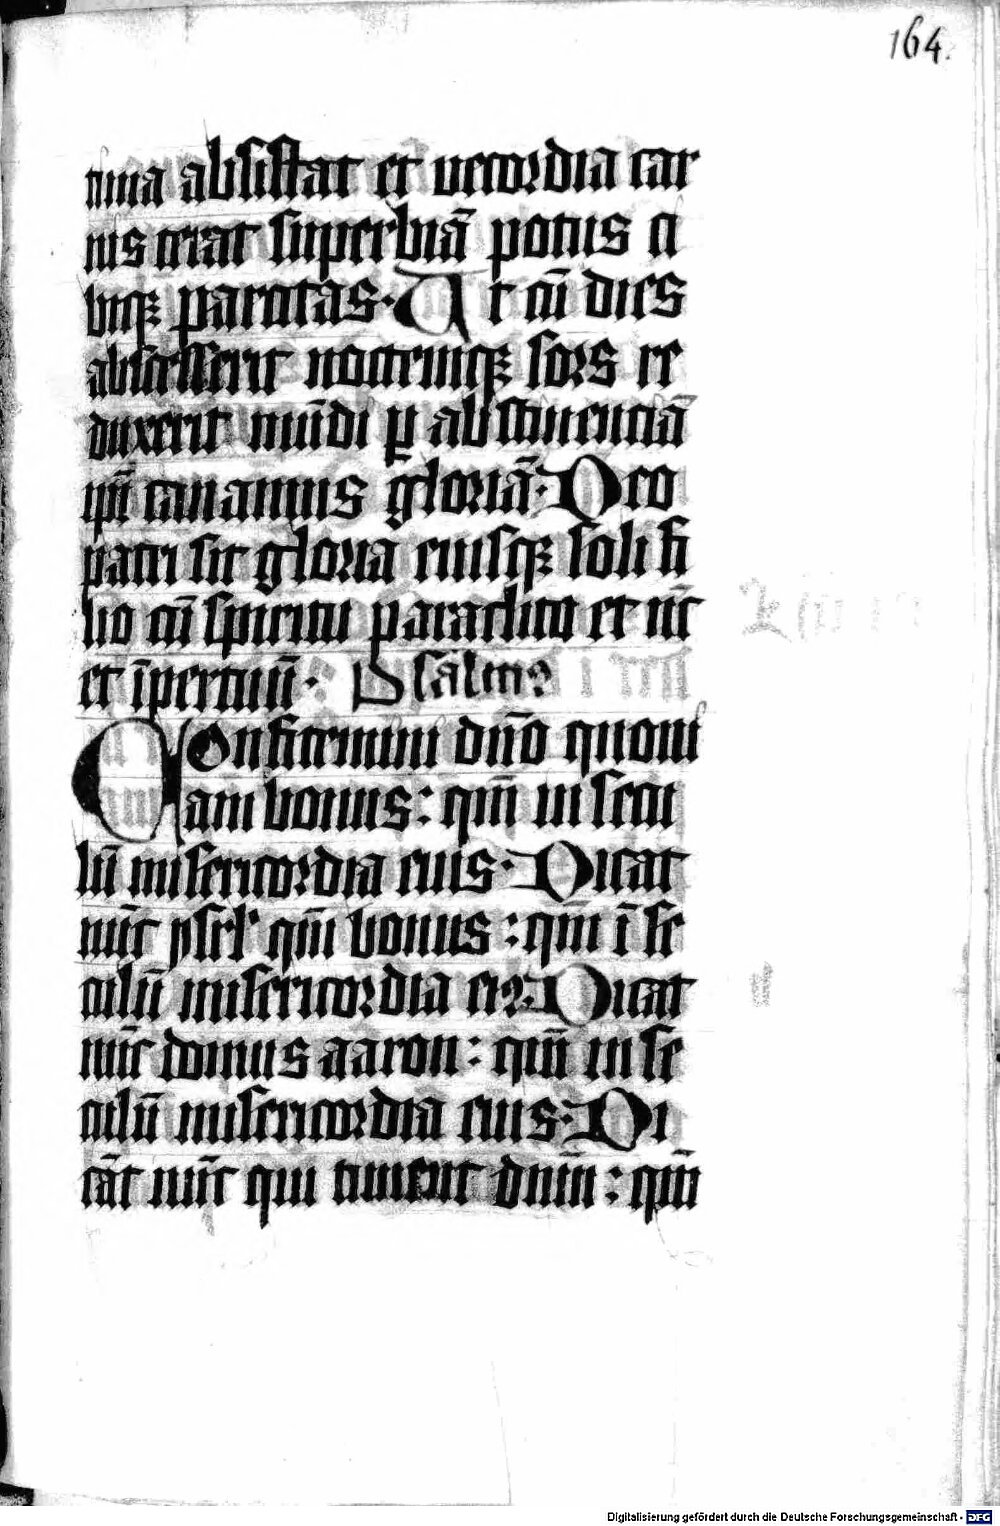 164.
tima absistat et vecordia car
nis terat superbiā potus ci
biq₃ parcitas. Ut cū dies
abscesserit noctemq₃ sors re
duxerit mūdi ꝑ abstinenciā
ip̄i canamus gloriā. Deo
patri sit gloria eiusq₃ soli fi
lio cū spiritu paraclito et nūc
et īperpetuū. Psalmꝰ
Confitemini dn̄o quoni
am bonus: qm̄ in secu
lū misericordia eius. Dicat
nūc ysrl' qm̄ bonus: qm̄ ī se
culū misericordia eiꝰ. Dicat
nūc domus aaron: qm̄ in se
culū misericordia eius. Di
cāt nūc qui timent dnm̄: qm̄
Digitalisierung gefördert durch die Deutsche Forschungsgemeinschaft - DFG